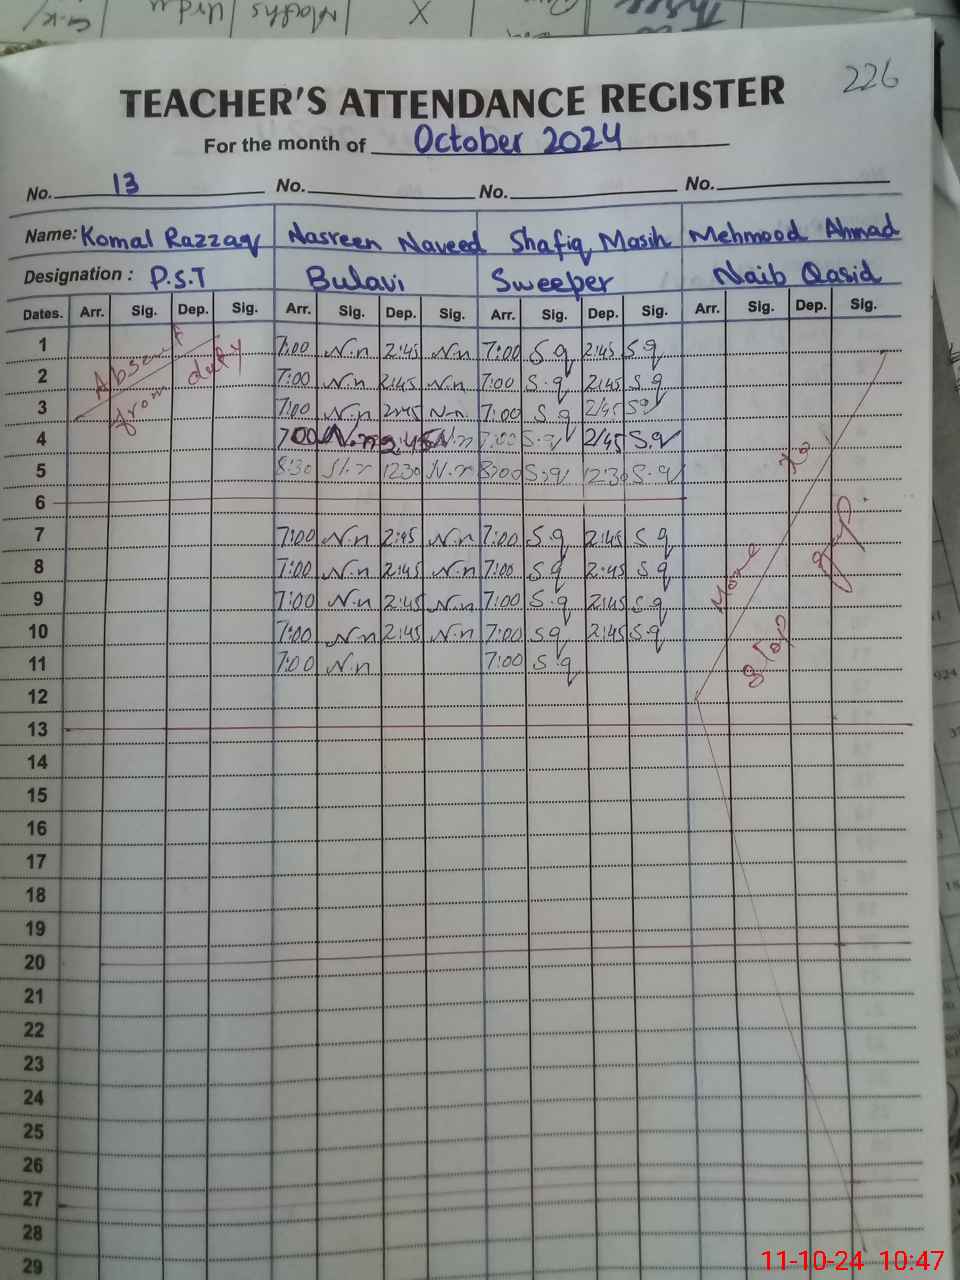 G.K Urdu Maths X
226
TEACHER'S ATTENDANCE REGISTER
For the month of October 2024
No. 13 No. No. No.
Name: Komal Razzaq Nasreen Naveed Shafiq Masih Mehmood Ahmad
Designation : P.S.T Bulavi Sweeper Naib Qasid
Dates. Arr. Sig. Dep. Sig. Arr. Sig. Dep. Sig. Arr. Sig. Dep. Sig. Arr. Sig. Dep. Sig.
Absent from duty
1 7:00 N.n 2:45 N.n 7:00 S.q 2:45 S.q
2 7:00 N.n 2:45 N.n 7:00 S.q 2:45 S.q
3 7:00 N.n 2:45 N.n 7:00 S.q 2/45 S.q
4 7:00 N.n 2:45 N.n 7:00 S.q 2/45 S.q
5 8:30 N.n 12:30 N.n 8:00 S.q 12:30 S.q
6
7 7:00 N.n 2:45 N.n 7:00 S.q 2:45 S.q
8 7:00 N.n 2:45 N.n 7:00 S.q 2:45 S.q
9 7:00 N.n 2:45 N.n 7:00 S.q 2:45 S.q
10 7:00 N.n 2:45 N.n 7:00 S.q 2:45 S.q
11 7:00 N.n 7:00 S.q
12
13
14
15
16
17
18
19
20
21
22
23
24
25
26
27
28
29
11-10-24 10:47